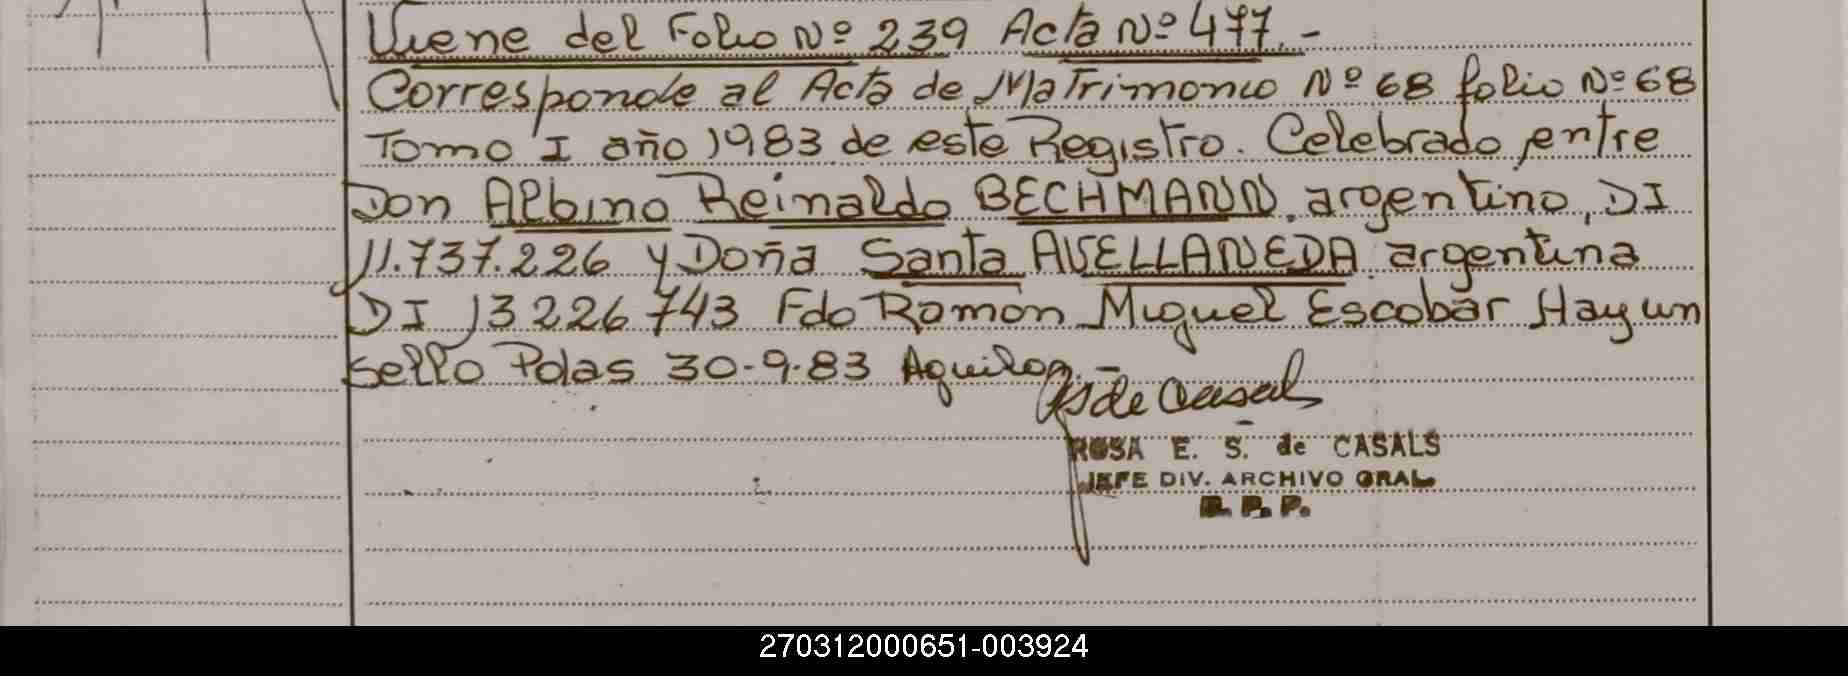 Viene del Folio Nº 239 Acta Nº 477.-
Corresponde al Acta de Matrimonio Nº 68 folio Nº 68
Tomo I año 1983 de este Registro. Celebrado entre
Don Albino Reinaldo BECHMANN. argentino, DI
11.737.226 y Doña Santa AVELLANEDA argentina
DI 13226743 Fdo Ramón Miguel Escobar Hay un
sello Pdas 30-9-83
de Casals
ROSA E. S. de CASALS
JEFE DIV. ARCHIVO GRAL
R. P. P.
270312000651-003924